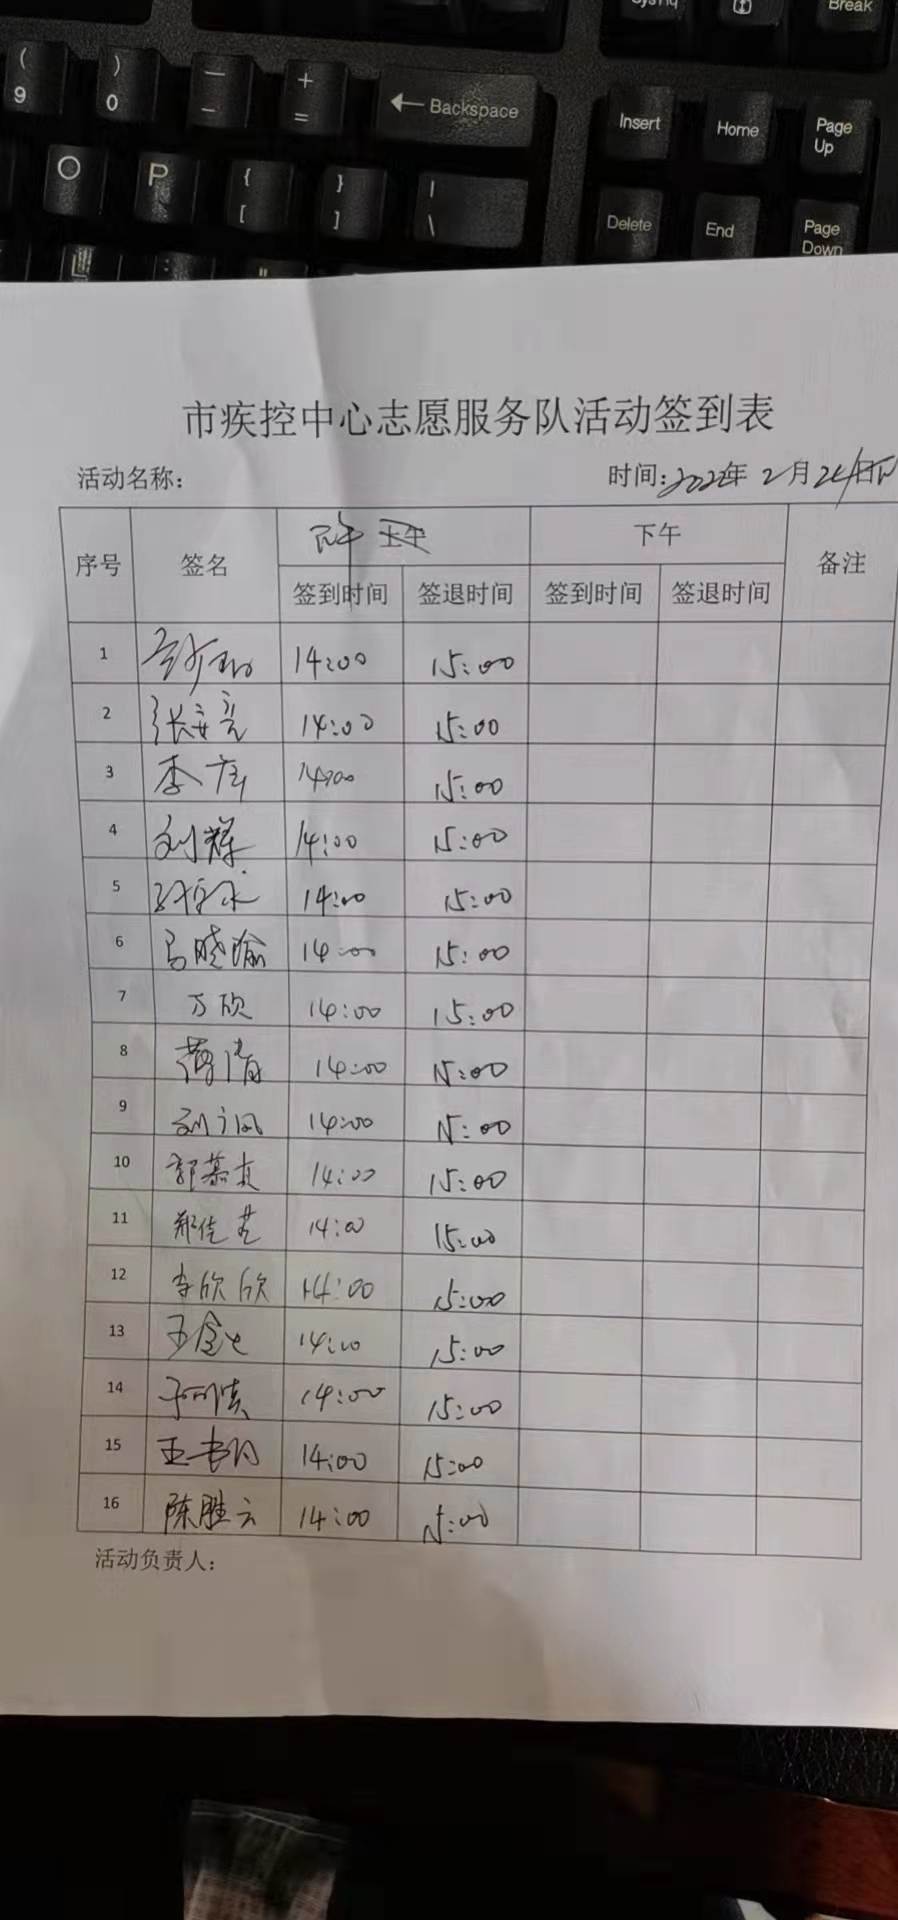 SysRq
Break
( 9
) 0
— -
+ =
← Backspace
Insert
Home
Page Up
O
P
{ [
} ]
| \
Delete
End
Page Down
市疾控中心志愿服务队活动签到表
活动名称:
时间:2022年2月24日
序号 签名 下午 上午 下午 备注
签到时间 签退时间 签到时间 签退时间
1 14:00 15:00
2 14:00 15:00
3 14:00 15:00
4 刘辉 14:00 15:00
5 14:00 15:00
6 马晓瑜 14:00 15:00
7 万欣 14:00 15:00
8 14:00 15:00
9 14:00 15:00
10 14:00 15:00
11 14:00 15:00
12 李欣欣 14:00 15:00
13 14:00 15:00
14 14:00 15:00
15 14:00 15:00
16 陈胜云 14:00 15:00
活动负责人: